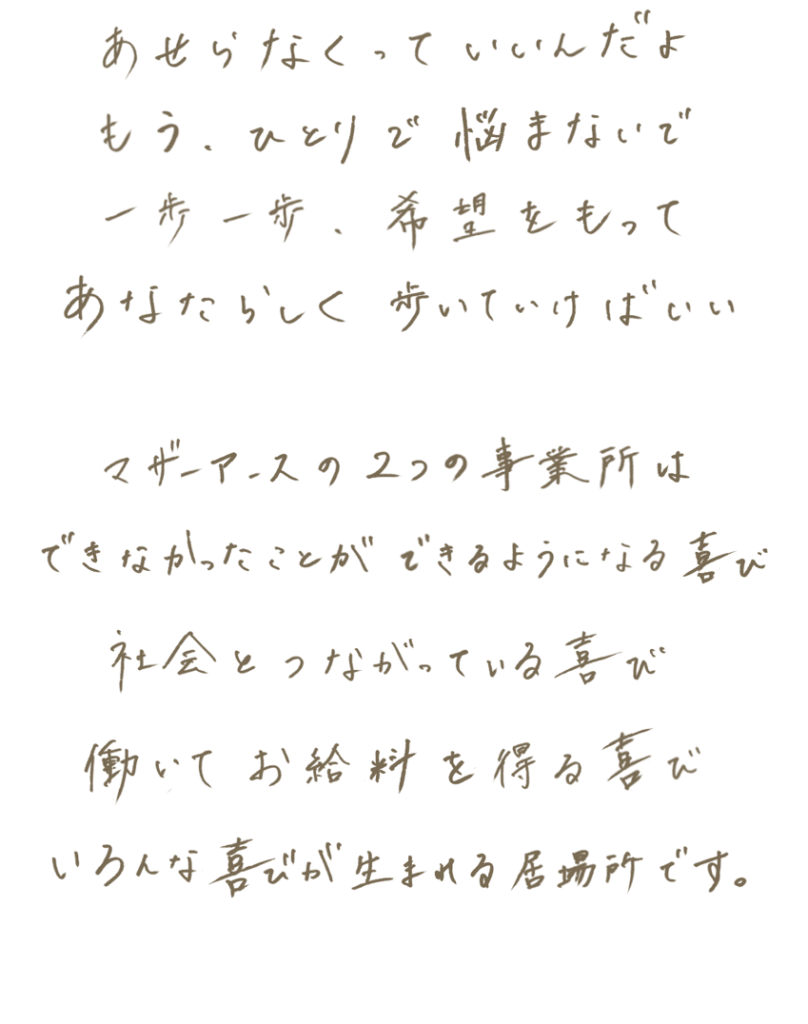 あせらなくっていいんだよ
もう、ひとりで 悩まないで
一歩一歩、希望をもって
あなたらしく 歩いていけばいい
マザーアースの２つの事業所は
できなかったことが できるようになる喜び
社会とつながっている喜び
働いて お給料を得る喜び
いろんな喜びが生まれる居場所です。